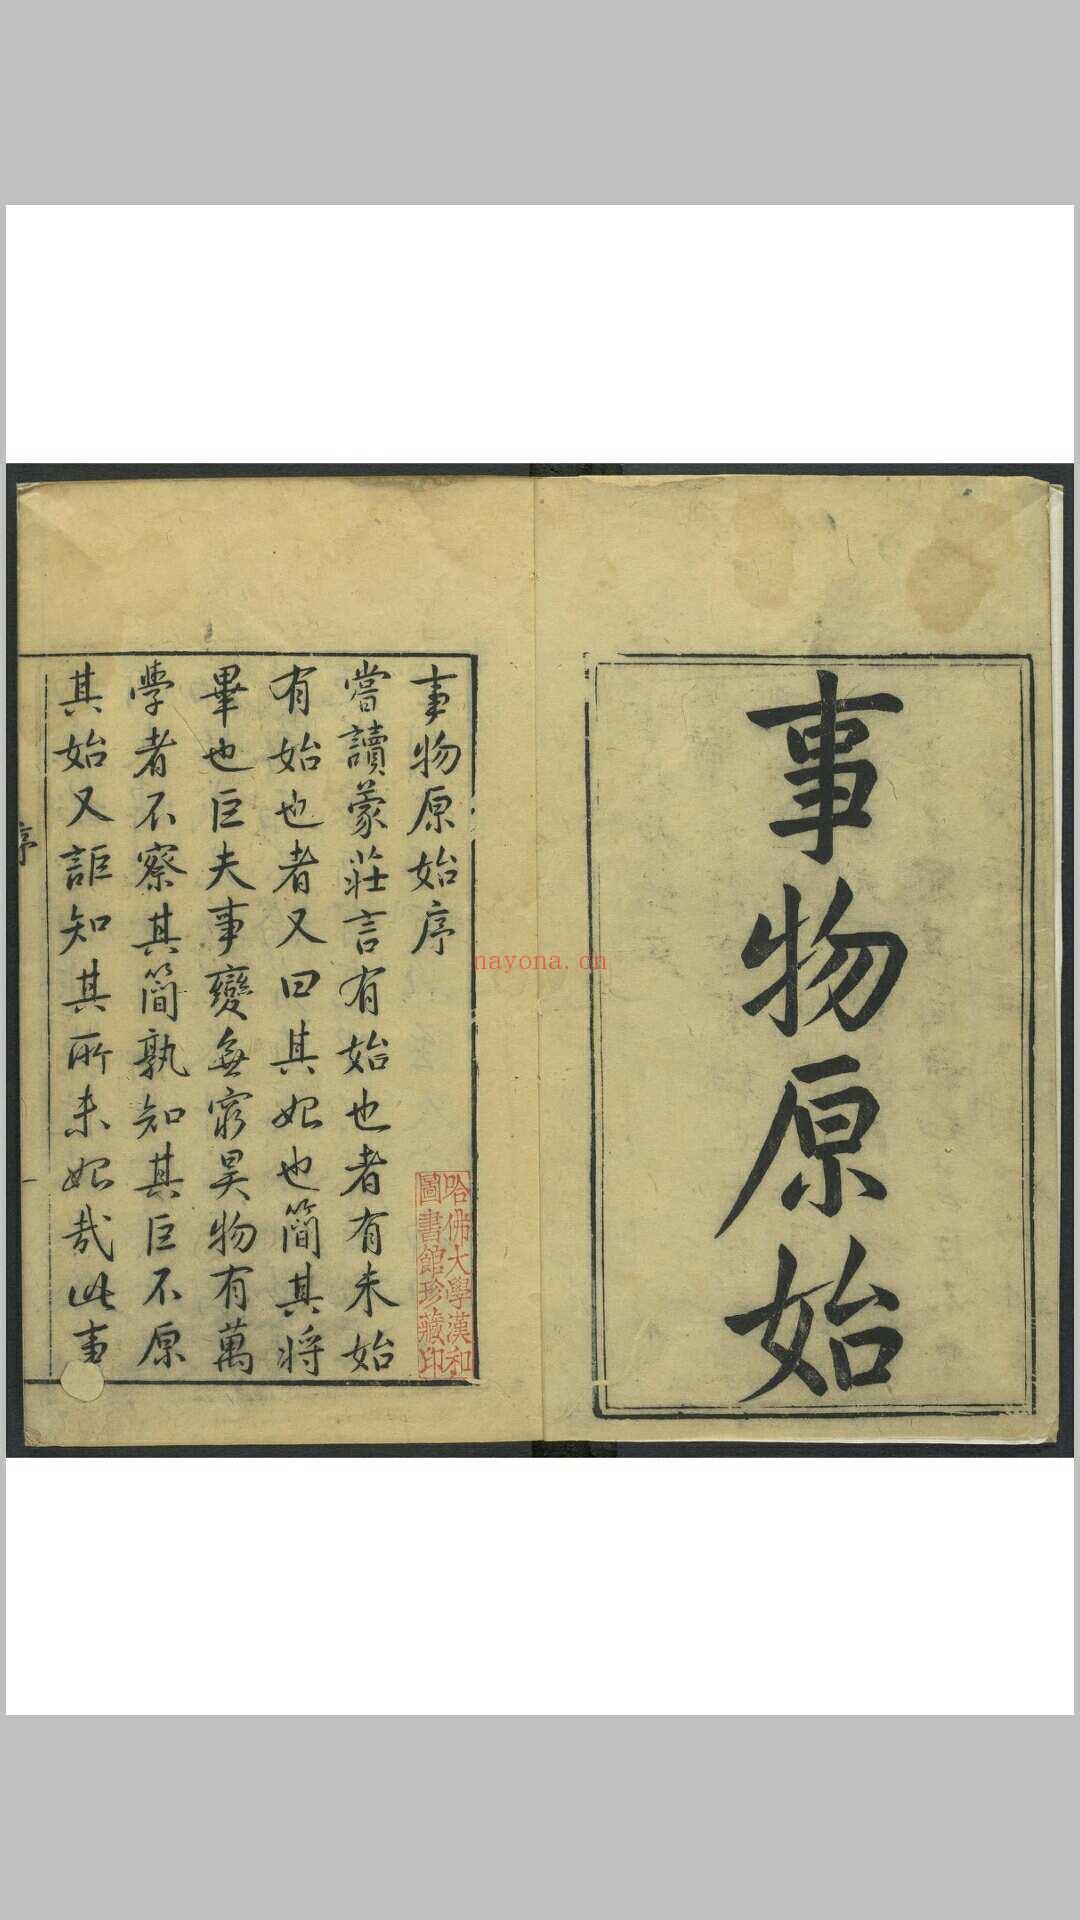 事物原始
事物原始序
嘗讀蒙莊言有始也者有未始
有始也者又曰其始也簡其将
畢也巨夫事變無窮昊物有萬
學者不察其簡孰知其巨不原
其始又詎知其所未始哉此事
序
一
哈佛大學漢和
圖書館珍藏印
nayona.cn